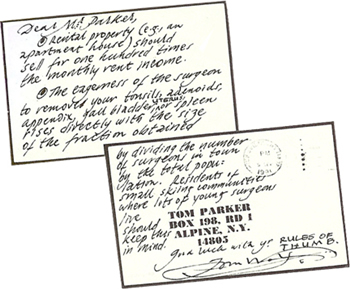 Dear Mr. Parker,
① Rental property (e.g., an
apartment house) should
sell for one hundred times
the monthly rent income.
② The eagerness of the surgeon
to remove your tonsils, adenoids,
appendix, gall bladder, uterus, or spleen
rises directly with the size
of the fraction obtained
by dividing the number
of surgeons in town
by the total popu-
lation. Residents of
small skiing communities
where lots of young surgeons
live
should
keep this
in mind.
TOM PARKER
BOX 198, RD 1
ALPINE, N.Y.
14805
Good luck with yr RULES OF
THUMB.
Tom